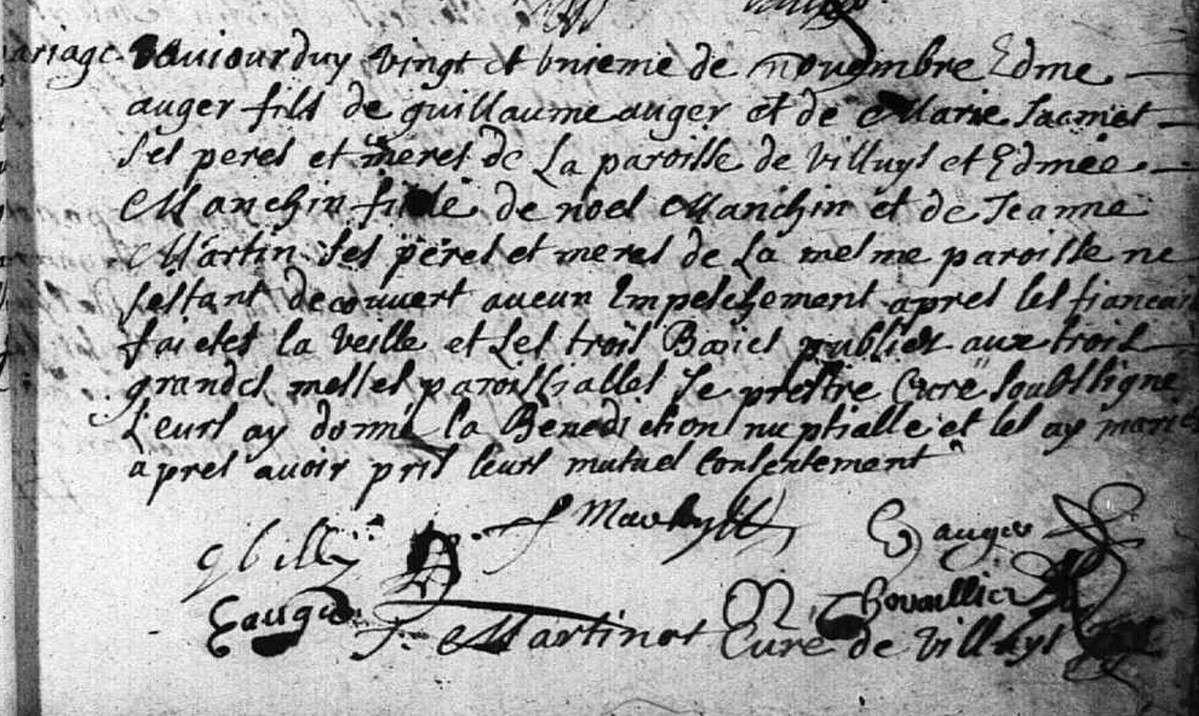 mariage. aujourduy vingt et unieme de novembre Edme
auger fils de guillaume auger et de Marie Jacmet
ses peres et meres de La paroisse de villuys et Edmée
Manchin fille de noel Manchin et de Jeanne
Martin ses peres et meres de La mesme paroisse ne
sestant decouvert aucun Empeschement apres les fiancai
faictes la veille et Les trois Bancs publies aux trois
grandes messes paroissialles Je prestre Curé soubssigne
Leurs ay donné la Benediction nuptialle et les ay marié
apres avoir pris leurs mutuel consentement
E auger
E auger M Chevaillier
J. Martinot Curé de villuys